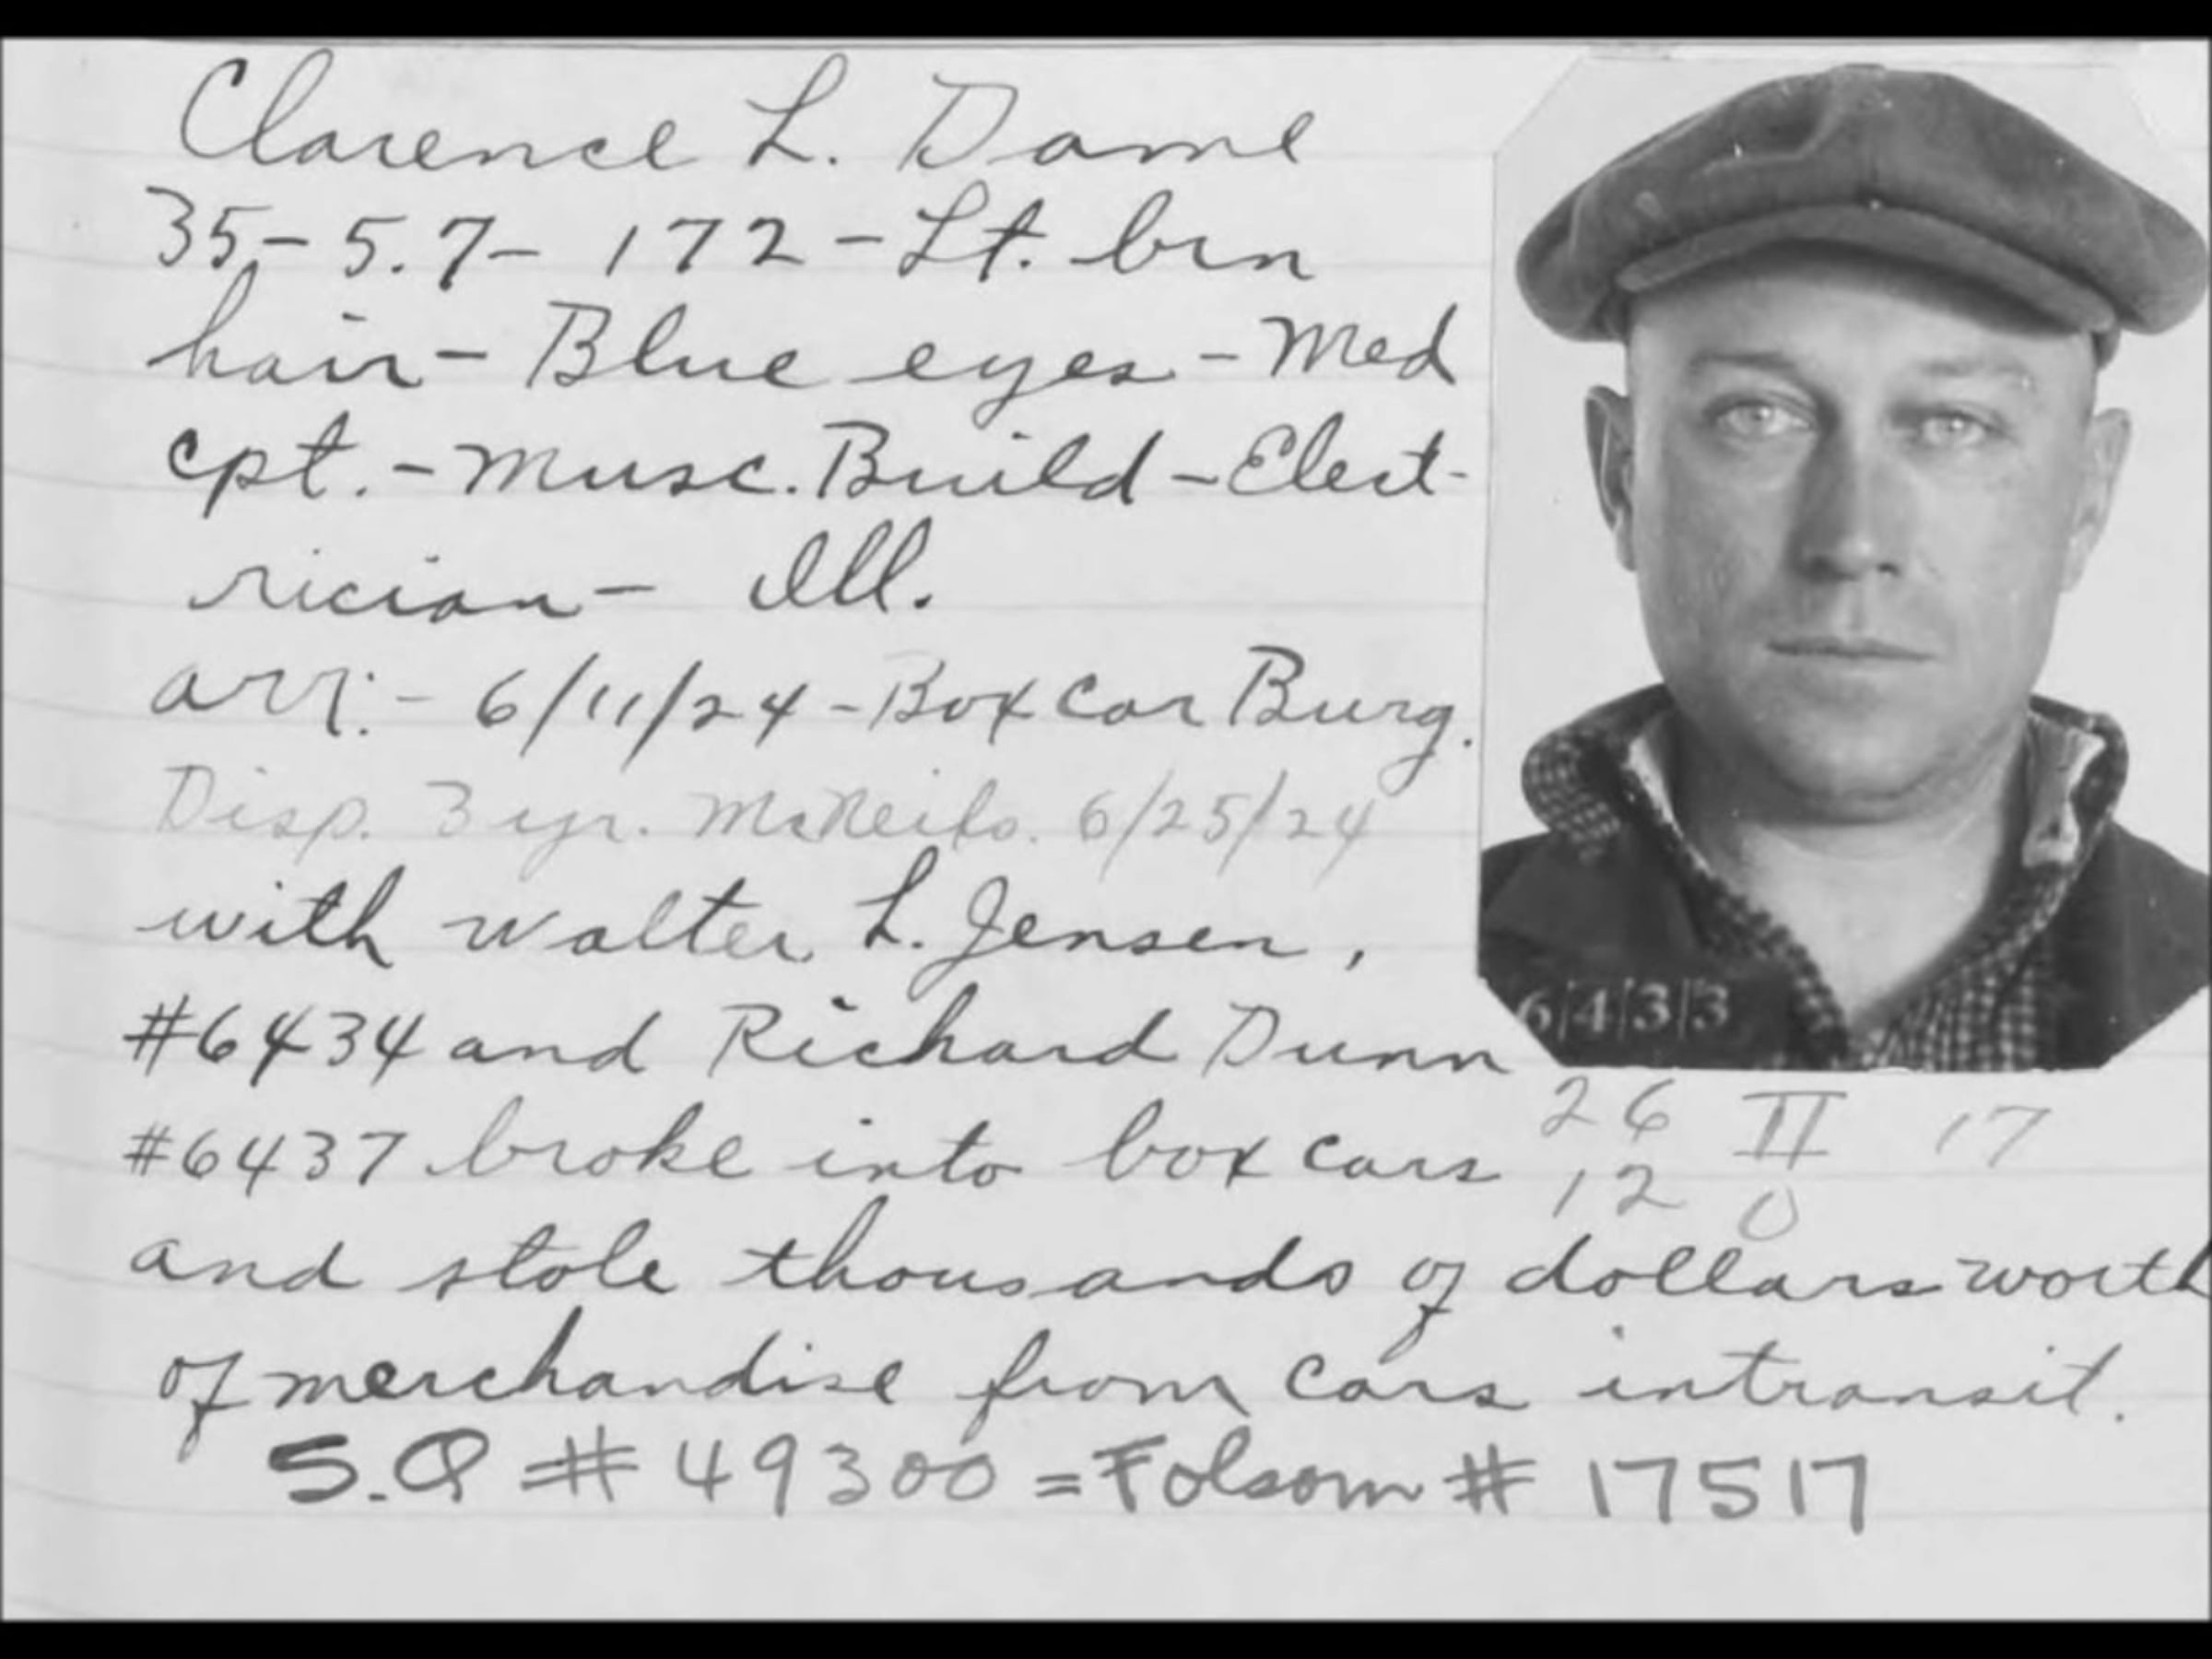 Clarence L. Dame
35-5.7- 172-Lt. brn
hair- Blue eyes-Med
cpt.-Musc. Build-Elect-
rician- Ill.
arr:- 6/11/24-Box car Burg.
Disp. 3 yr. McNeils. 6/25/24
with Walter L. Jensen,
#6434 and Richard Dunn
#6437 broke into box cars
and stole thousands of dollars worth
of merchandise from cars intransit.
S.Q #49300 = Folsom # 17517
6/4/3/3
26 II 17
12 0